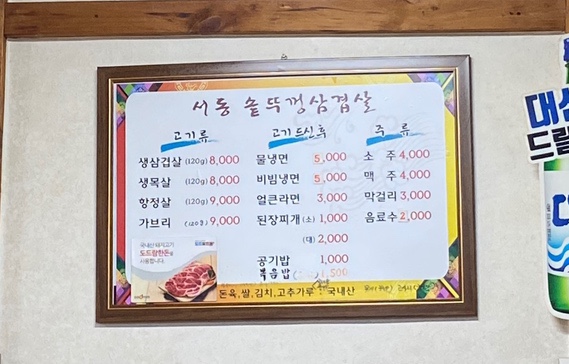 서동 솥뚜껑삼겹살
고기류
생삼겹살 (120g) 8,000
생목살 (120g) 8,000
항정살 (120g) 9,000
가브리 (120g) 9,000
고기드신후
물냉면 5,000
비빔냉면 5,000
얼큰라면 3,000
된장찌개 (소) 1,000
(대) 2,000
공기밥 1,000
볶음밥
주류
소주 4,000
맥주 4,000
막걸리 3,000
음료수 2,000
국내산 돼지고기
도드람한돈을
사용합니다.
돈육,쌀,김치,고추가루 : 국내산
대선
드릴